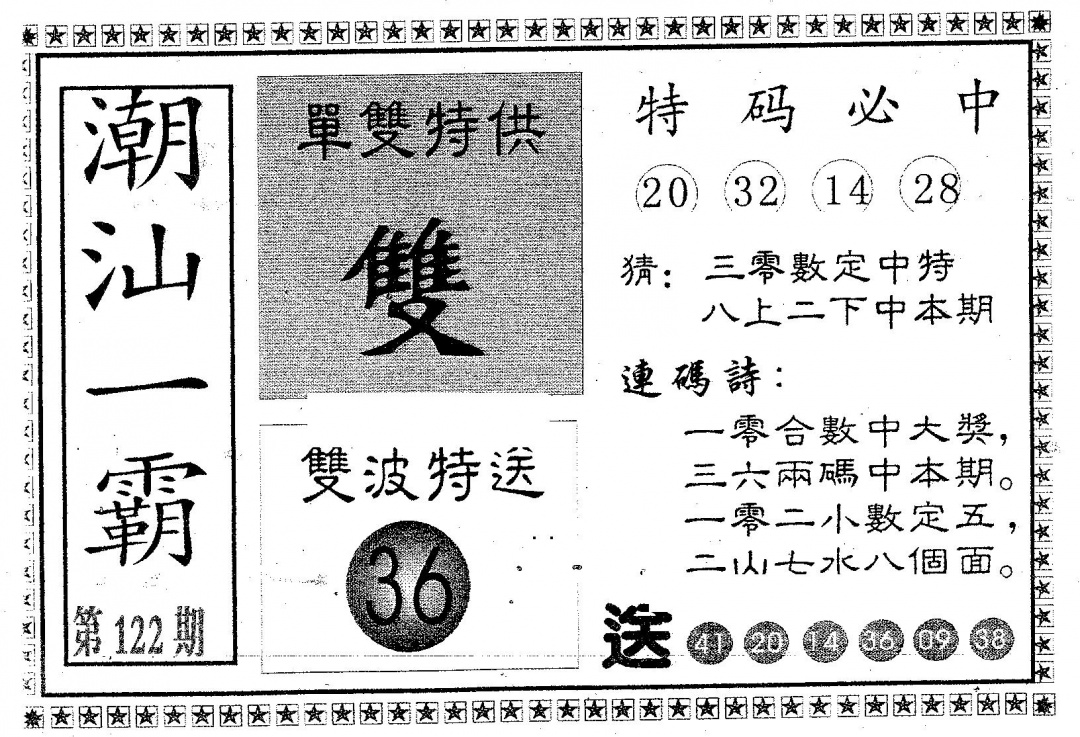 潮汕一霸
第122期
單雙特供
雙
雙波特送
36
特码必中
20 32 14 28
猜：三零數定中特
八上二下中本期
連碼詩：
一零合數中大獎，
三六兩碼中本期。
一零二小數定五，
二山七水八個面。
送 41 20 14 36 09 38